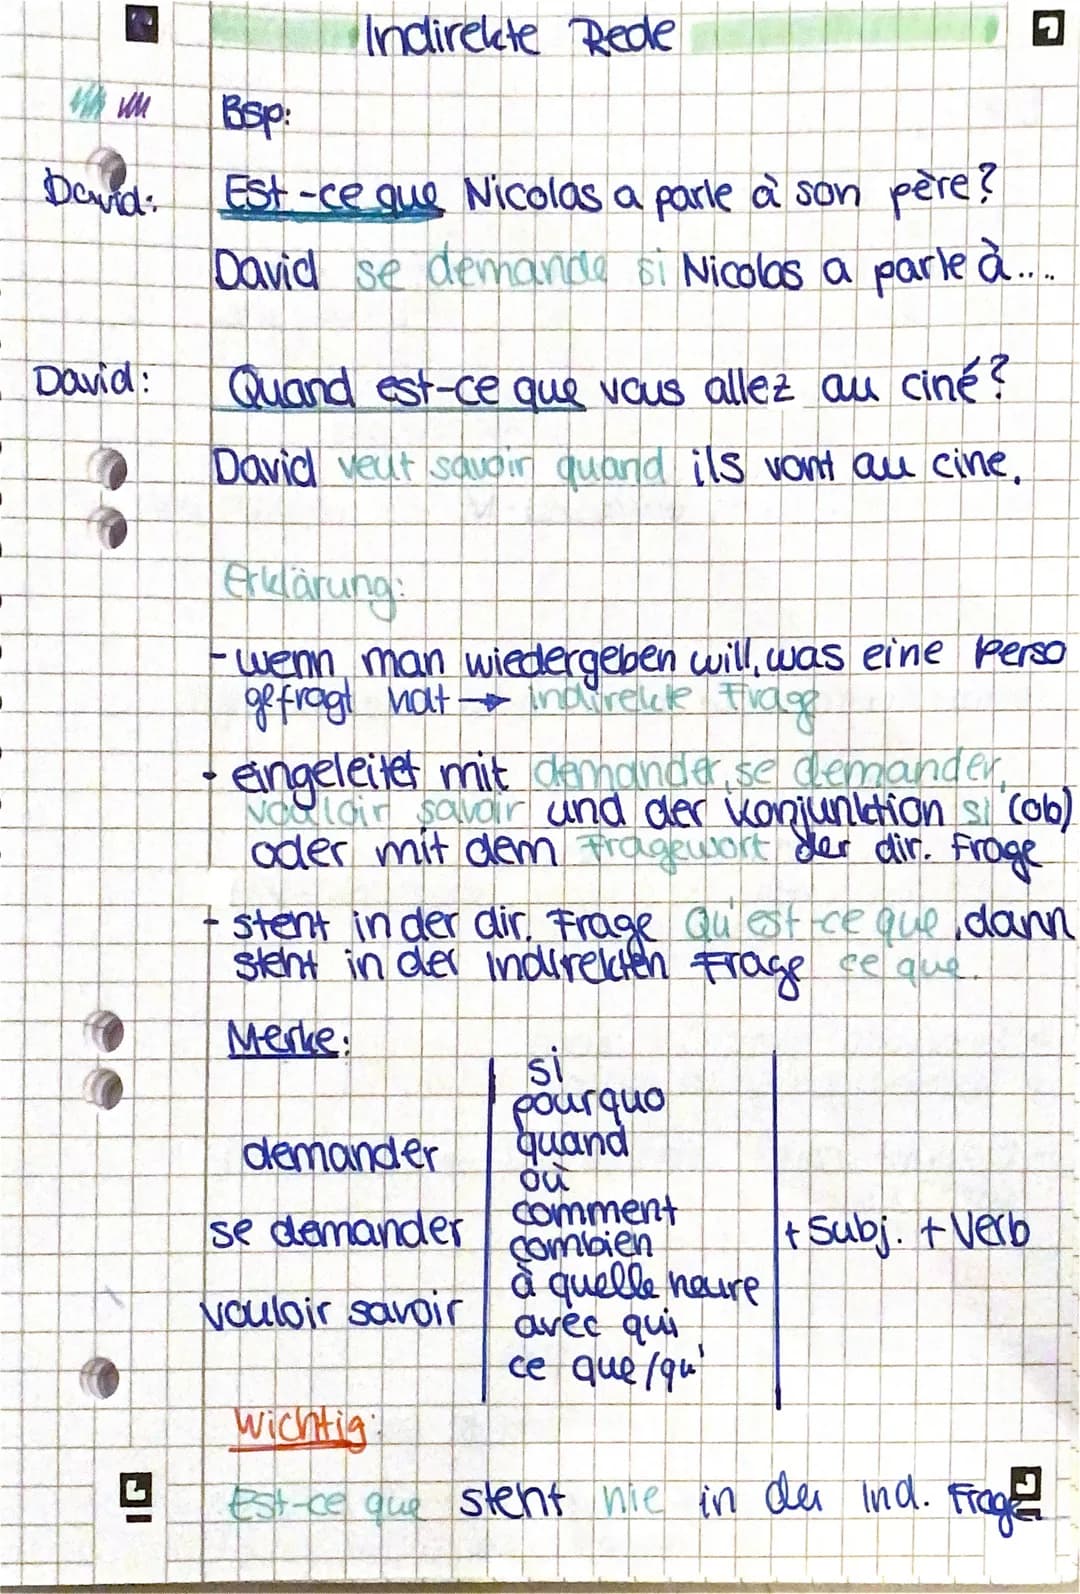 Indirekte Rede
Bsp:
David: Est-ce que Nicolas a parle à son père?
David se demande si Nicolas a parle à....
David: Quand est-ce que vous allez au ciné?
David veut savoir quand ils vont au cine.
Erklärung:
- wenn man wiedergeben will, was eine Perso
gefragt hat → indirekte Frage
- eingeleitet mit demander, se demander,
vouloir savoir und der Konjunktion si (ob)
oder mit dem Fragewort der dir. Frage
- steht in der dir. Frage Qu'est-ce que, dann
steht in der indirekten Frage ce que.
Merke:
si
pourquo
demander quand
où
se demander comment + Subj. + Verb
combien
à quelle heure
vouloir savoir avec qui
ce que/qu'
Wichtig:
Est-ce que steht nie in der ind. Frage